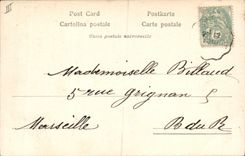 Post Card Postkarte
Cartolina postale Carte postale
Mademoiselle Billaud
5 rue Grignan 5
Marseille B du R